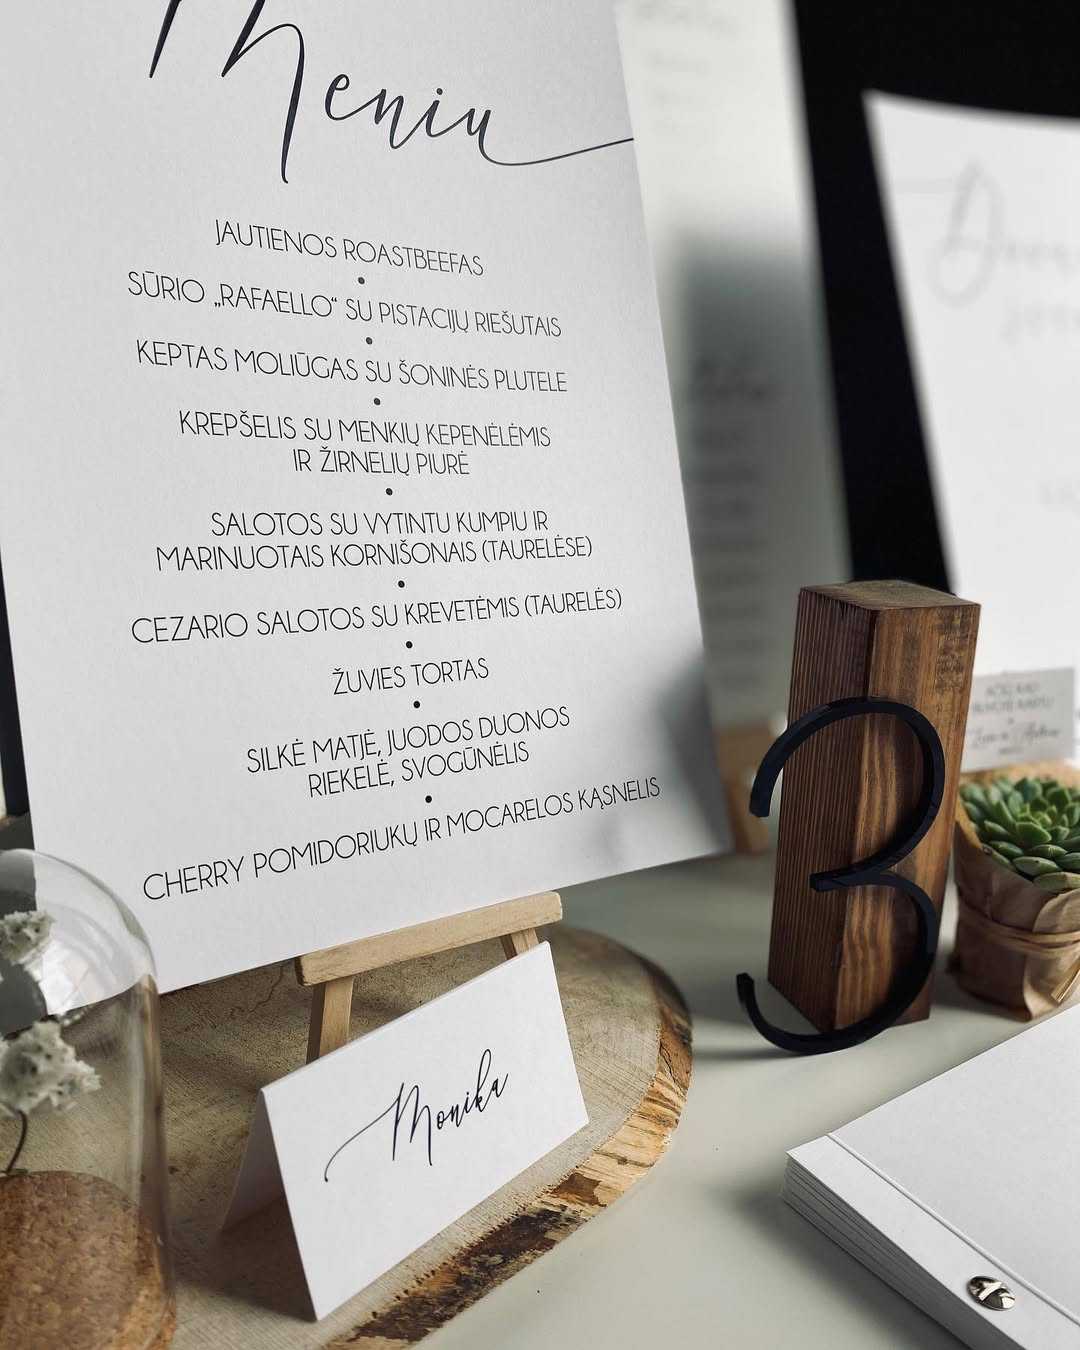 Meniu
JAUTIENOS ROASTBEEFAS
•
SŪRIO „RAFAELLO“ SU PISTACIJŲ RIEŠUTAIS
•
KEPTAS MOLIŪGAS SU ŠONINĖS PLUTELE
•
KREPŠELIS SU MENKIŲ KEPENĖLĖMIS
IR ŽIRNELIŲ PIURĖ
•
SALOTOS SU VYTINTU KUMPIU IR
MARINUOTAIS KORNIŠONAIS (TAURELĖSE)
•
CEZARIO SALOTOS SU KREVETĖMIS (TAURELĖS)
•
ŽUVIES TORTAS
•
SILKĖ MATJĖ, JUODOS DUONOS
RIEKELĖ, SVOGŪNĖLIS
•
CHERRY POMIDORIUKŲ IR MOCARELOS KĄSNELIS
Monika
3